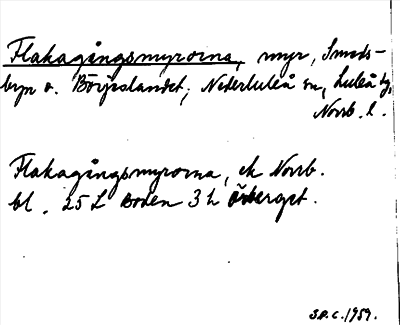 Flakagångsmyrorna, myr, Smeds-
byn o. Börjeslandet, Nederluleå sn, Luleå tg,
Norrb. l.
Flakagångsmyrorna, ek Norrb.
bl. 25 L Boden 3 h Åsberget.
S.P.C. 1959.